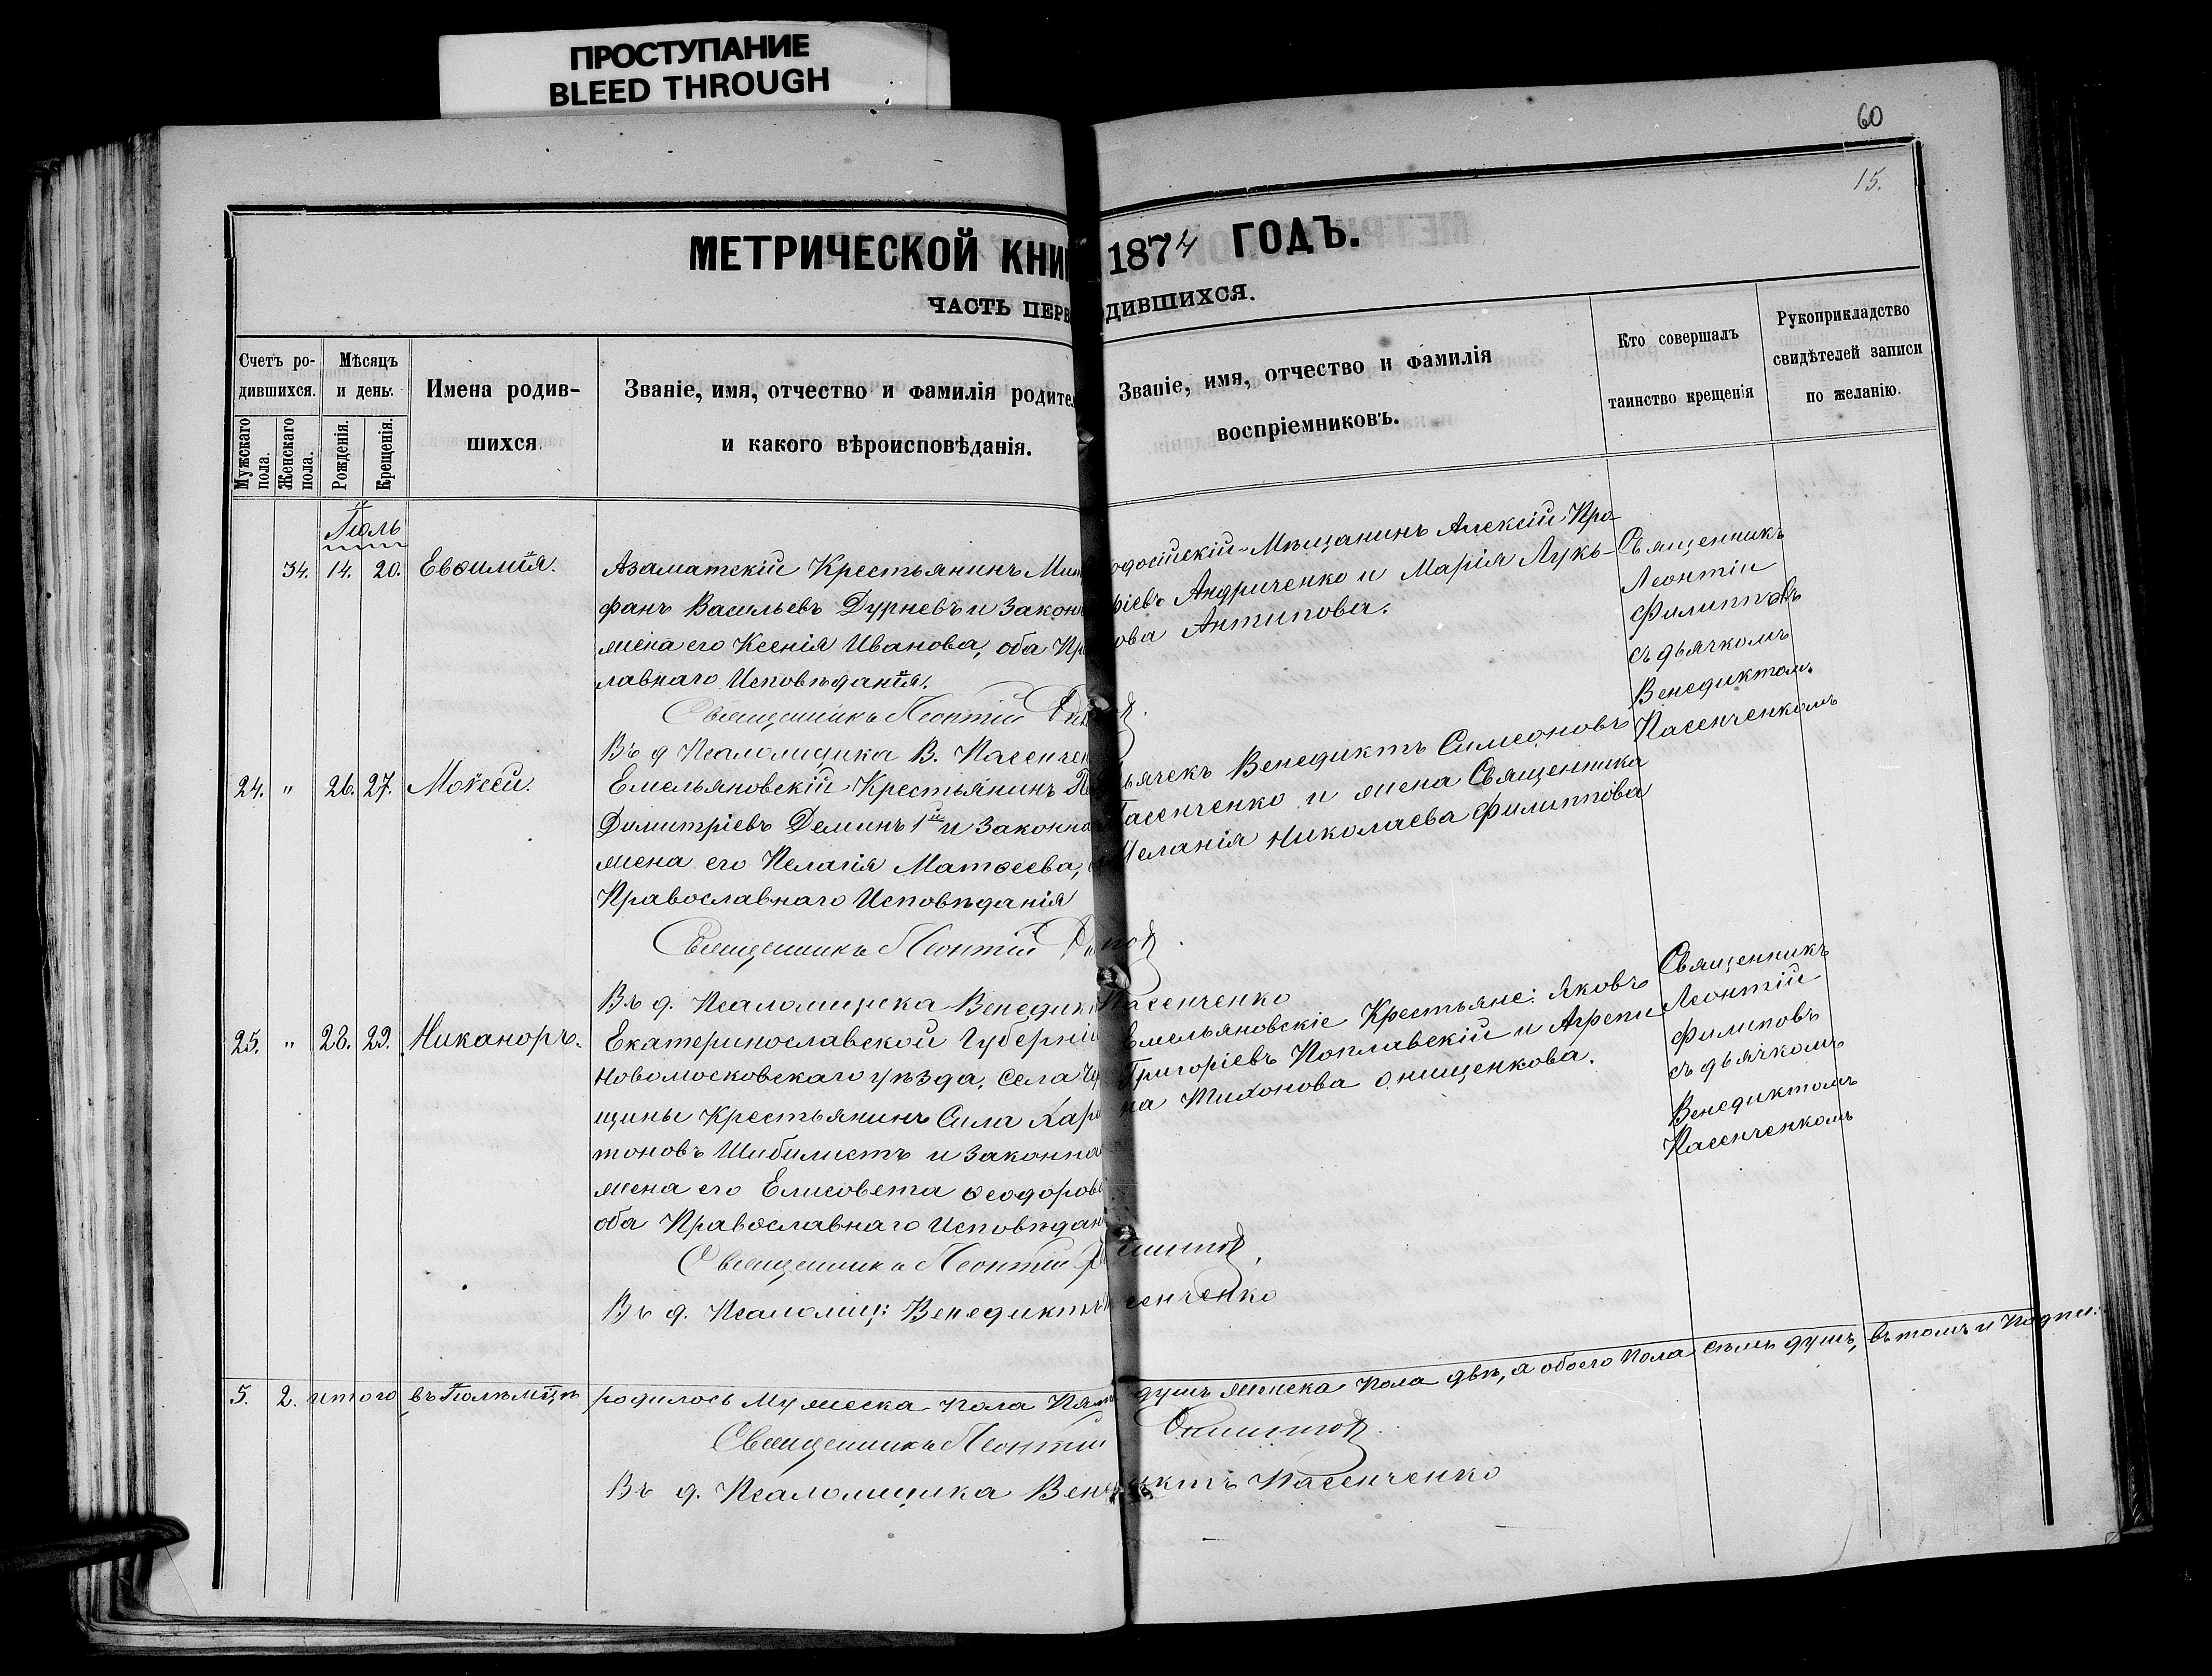 ПРОСТУПАНИЕ
BLEED THROUGH
60
15.
МЕТРИЧЕСКОЙ КНИ 1874 ГОДЪ.
ЧАСТЬ ПЕРВ ОДИВШИХСЯ.
Счетъ ро-
дившихся.
Мужскаго пола.
Женскаго пола.
Мѣсяцъ
и день.
Рожденія.
Крещенія.
Имена родив-
шихся.
Званіе, имя, отчество и фамилія родител
и какого вѣроисповѣданія.
Званіе, имя, отчество и фамилія
воспріемниковъ.
Кто совершалъ
таинство крещенія
Рукоприкладство
свидѣтелей записи
по желанію.
Іюль
34. 14. 20. Евѳимія.
Азаматскій Крестьянинъ Мит
фанъ Васильевъ Дурневъ и Закон
жена его Ксенія Иванова, оба Пр
лавнаго Исповѣданія.
Священникъ Леонтій
Въ д Псаломщика В. Пасенче
одосійскій Мѣщанинъ Алексій Про-
ріевъ Андриченко и Марія Лукь-
ова Антипова.
Священникъ
Леонтій
Филипповъ
съ дьячкомъ
Венедиктом.
Пасенченкомъ
24. " 26. 27. Моѵсей.
Емельяновскій Крестьянинъ
Димитріевъ Деминъ 1й и Законна
жена его Пелагія Матѳеева,
Православнаго Исповѣданія
Священникъ Леонтій
Въ д. Псаломщика Венедик Пасенченко
ьячекъ Венедиктъ Симеоновъ
Пасенченко и жена Священника
Меланія Николаева Филиппова
25. " 28. 29. Никаноръ.
Екатеринославской Губерніи
Новомосковскаго уѣзда, Села
щины Крестьянинъ Сила Хари
тоновъ Шибилистъ и Законна
жена его Елисовета Ѳеодоров
оба Православнаго Исповѣдан
Священникъ Леонтій
Въ д. Псаломщ: Венедиктъ сенченко
Емельяновскіе Крестьяне: Яковъ
Григоріевъ Поплавскій и Агрепи
на Тихонова Онищенкова.
Священникъ
Леонтій
Филиповъ
съ дьячкомъ
Венедиктомъ
Пасенченкомъ
5. 2. итого въ Іюлѣ мцѣ родилось Мужеска пола Пять душъ Женска пола двѣ, а обоего Пола семь душъ, въ томъ и Подпи:
Священникъ Леонтій Филипповъ.
Въ д. Псаломщика Венедиктъ Пасенченко